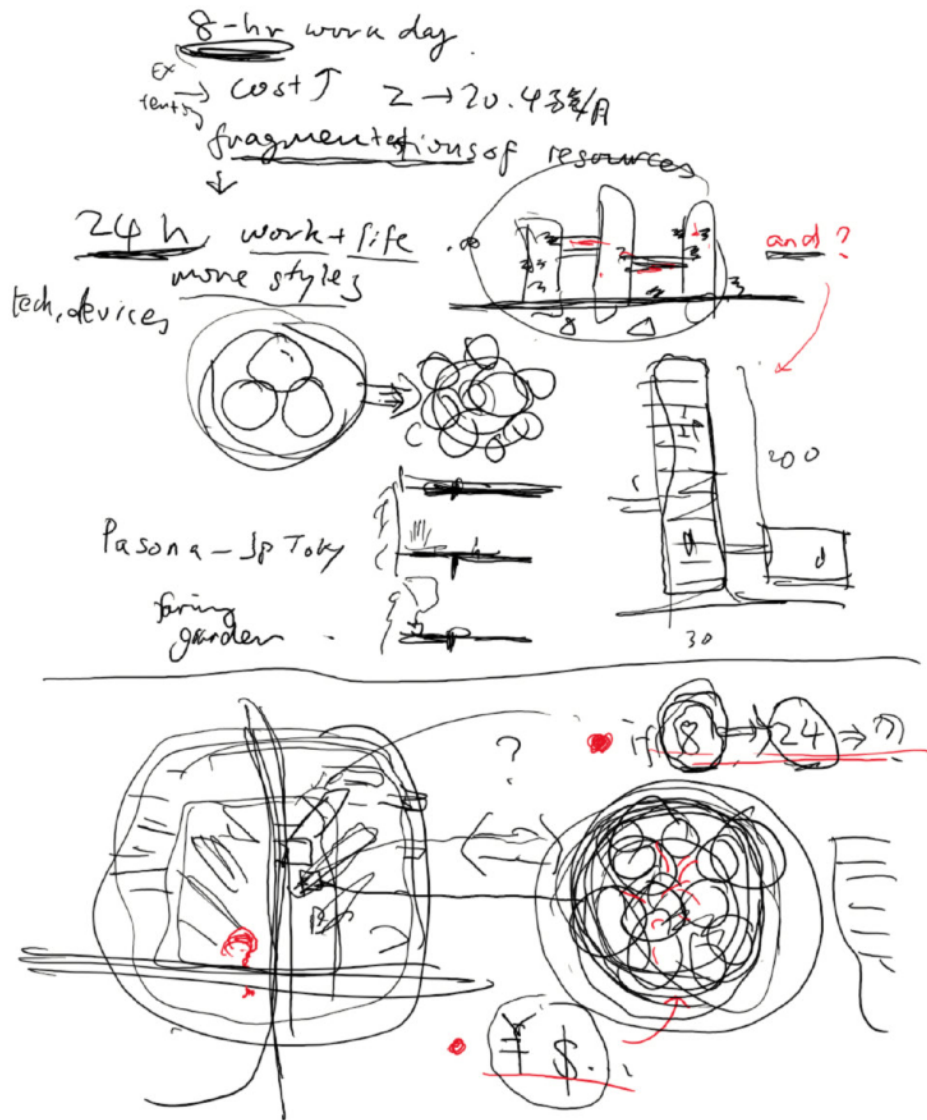 8-hr work day.
Ex
→ cost↑ 2→20.4
fragmentations of resources
↓
24 h work + life
more styles
and?
tech, devices
200
Pasona - Jp Toky
garden
30
?
if 8 → 24 → ?
¥ $